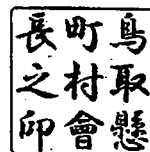 鳥取縣
町村會
長之印